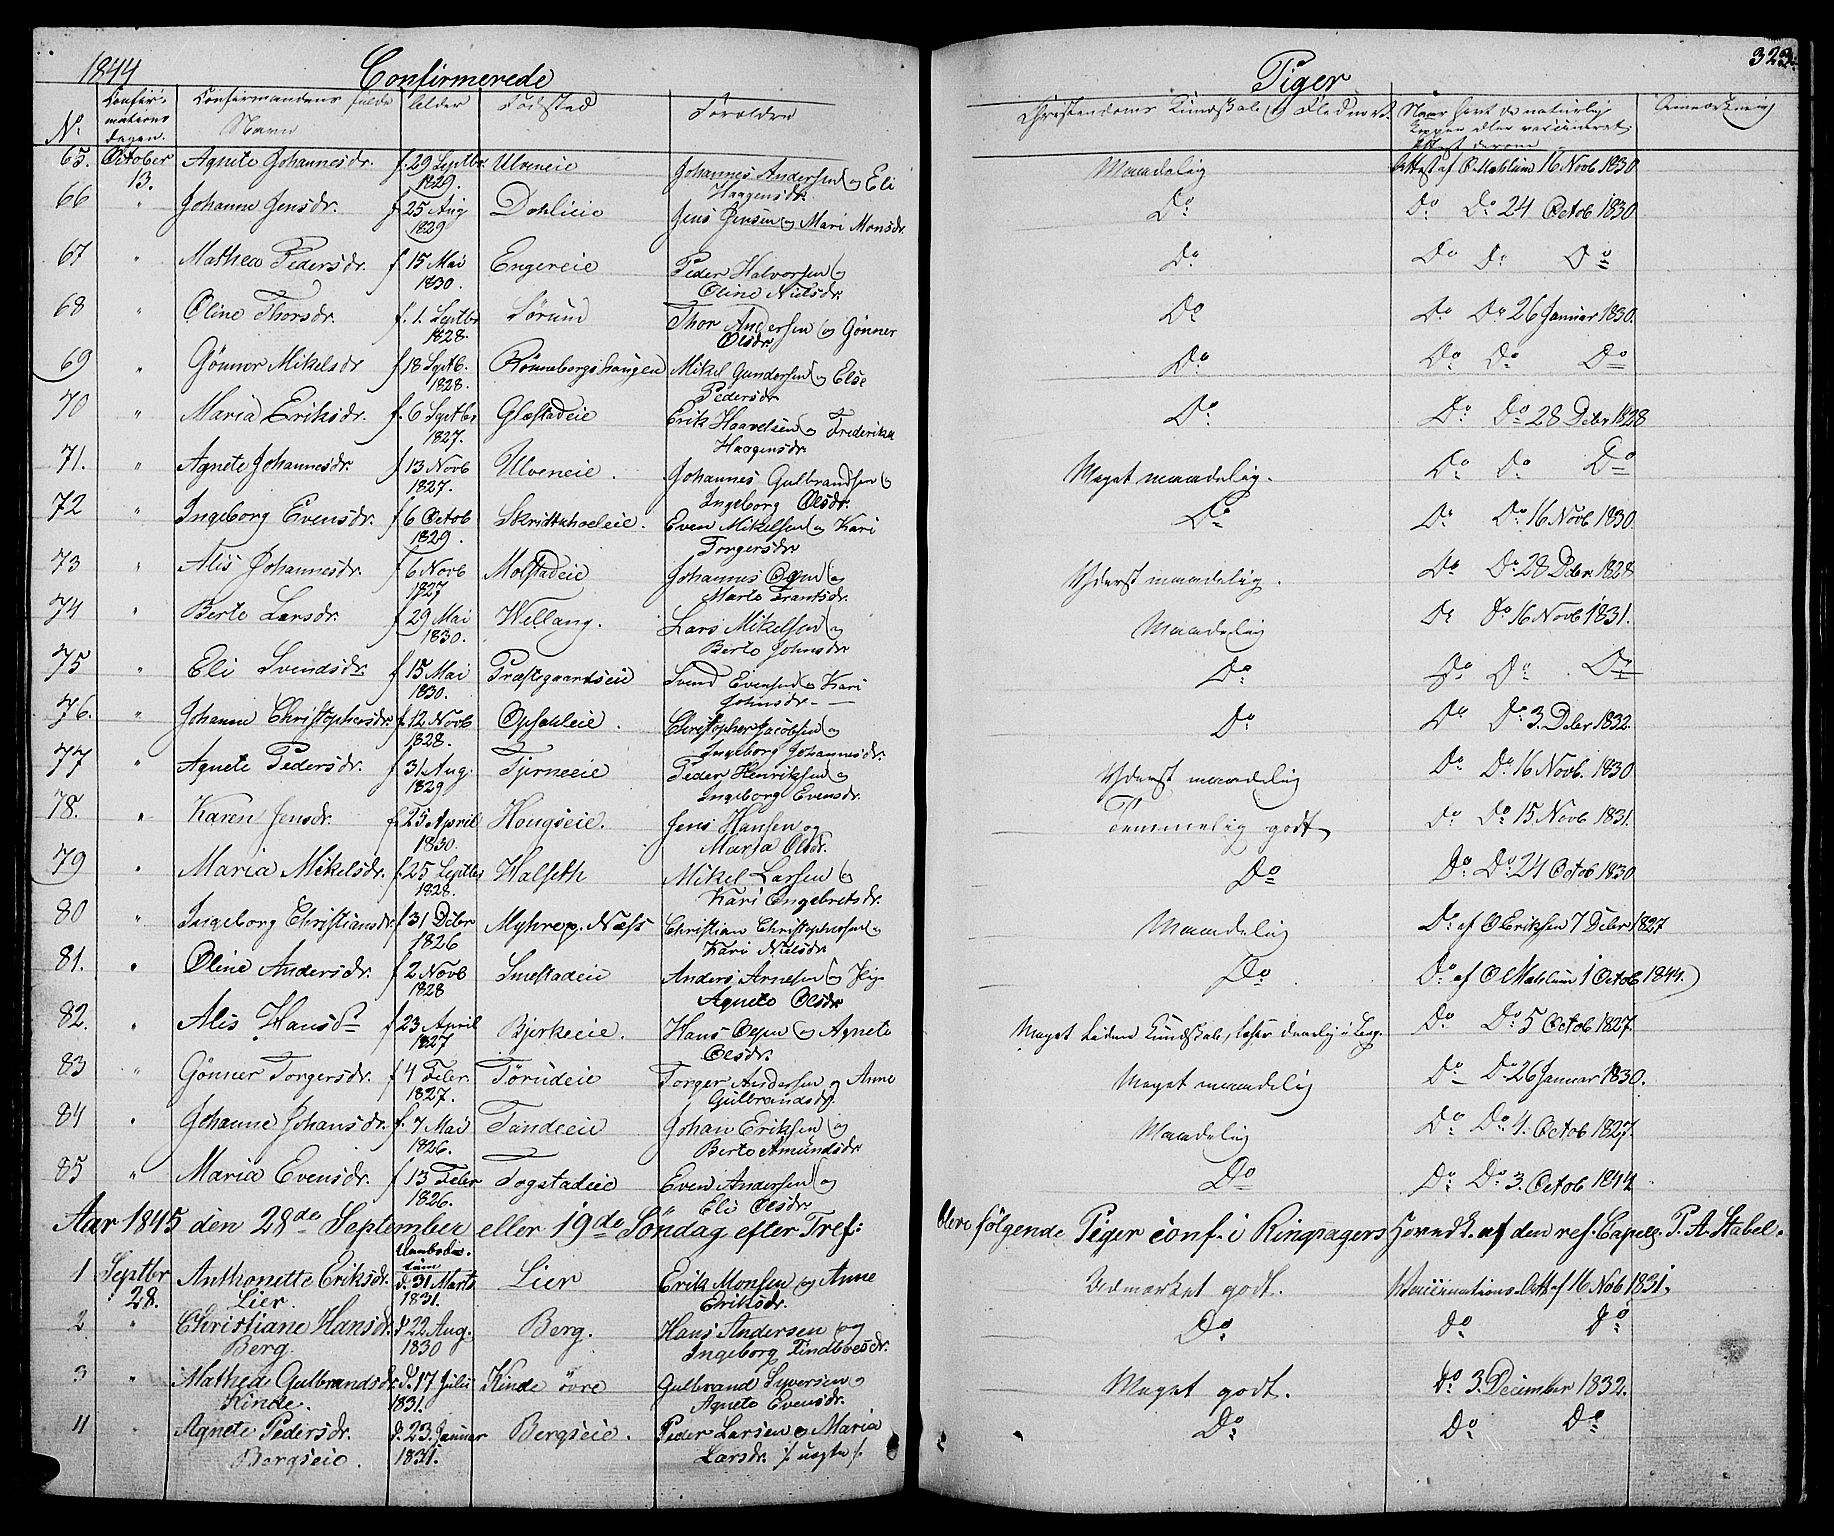 1844 Confirmerede Piger 323.
No Confirmations dagen. Confirmandens fulde Navn Alder Fødested Forældre Christendoms Kundskab og Flid Naar havt de naturlige Kopper eller vaccineret Attest derom Anmærkning
65. October 13. Agnete Johannesdr. f. 29 Septbr 1829. Ulveneie Johannes Andersen og Eli Haagensdr. Maadelig Attest af O. Mæhlum 16 Novb 1830
66 " Johanne Jensdr. f 25 Aug 1829 Dohlieie Jens Jensen og Mari Monsdr. Do Do Do 24 Octob 1830
67 " Mathea Pedersdr. f 15 Mai 1830. Engereie Peder Halvorsen og Oline Nielsdr. Do Do Do Do
68 " Oline Thorsdr. f. 1. Septbr 1828. Sørum Thor Andersen og Gønner Olsdr. Do Do Do 26 Januar 1830.
69 " Gønnor Mikelsdr f 18 Septb. 1828. Rønneborgshaugen Mikel Gundersen og Else Pedersdr Do Do Do Do
70 " Maria Eriksdr. f. 6 Septbr 1827. Glæstadeie Erik Haavelsen og Frederikke Haagensdr. Do Do Do 28 Debr 1828
71. " Agnete Johannesdr. f 13 Novb 1827. Ulveneie. Johannes Gulbrandsen og Ingeborg Olsdr. Meget maadelig. Do Do Do
72 " Ingeborg Evensdr. f 6 Octob 1829. Skrittshoeleie. Even Mikelsen og Kari Torgersdr Do Do Do 16 Novb 1830.
73 " Alis Johannesdr. f 6 Novb 1827 Molstadeie Johannes Olsen og Marte Frantsdr. Yderst maadelig. Do Do 28 Debr 1828
74 " Berte Larsdr. f 29 Mai 1830. Wellang. Lars Mikelsen og Berte Johnsdr Maadelig Do Do 16 Novb 1831.
75 " Eli Svendsdr f 15 Mai 1830. Præstgaardseie Svend Evensen og Kari Johnsdr. Do Do Do Do
76. " Johanne Christophersdr. f. 12 Novb 1828. Opsahleie. Christopher Jacobsen og Ingeborg Johannesdr. Do Do Do 3. Debr 1832.
77 " Agnete Pedersdr. f 31 Aug. 1829 Tjerneeie Peder Henriksen og Ingeborg Evensdr. Yderst maadelig Do Do 16 Novb. 1830
78. " Karen Jensdr. f. 25 April 1830. Hougseie. Jens Hansen og Maria Olsdr. Temmelig godt Do Do 15 Novb 1831.
79 " Maria Mikelsdr. f. 25 Septbr 1828. Halseth Mikel Larsen og Kari Engebretsdr. Do Do Do 24 Octob 1830
80 " Ingeborg Christiansdr. f 31 Debr 1826 Myhre p. Næss Christian Christophersen og Kari Nielsdr Maadelig Do af O Eriksen 7 Debr 1827
81. " Oline Andersdr. f 2 Novb 1828 Smestadeie Anders Arnesen og Pige Agnete Olsdr Do Do af O Mæhlum 1 Octob 1844.
82. " Alis Hansdr f 23 April 1827 Bjerkeeie. Hans Olsen og Agnete Olsdr. Meget liden Kundskab, læser daarlig i Bog. Do Do 5 Octob 1827.
83 " Gønner Torgersdr. f 4 Febr. 1827. Tørudeie Torger Andersen og Anne Gulbrandsdr. Meget maadelig Do D. 26 Januar 1830.
84 " Johanne Johansdr. f. 7 Mai 1826. Tandeeie Johan Eriksen og Berte Amundsdr Maadelig Do Do 4. Octob 1827.
85 " Maria Evensdr. f 13 Febr 1826. Togstadeie Even Andersen og Eli Olsdr. Do Do Do 3. Octob 1844
Aar 1845 den 28de September eller 19de Søndag efter Tref: bleve følgende Piger conf. i Ringsagers Hovedk. af den res. Capell. P. A. Stabel.
1 Septbr 28. Anthonette Eriksdr. Lier. f. 31 Marts 1831. Lier Erik Monsen og Anne Eriksdr. Udmærket godt. Vaccinations Att. af 16 Nob 1831.
2. " Christiane Hansdr. Berg. f 22 Aug. 1830 Berg. Hans Andersen og Ingeborg Findboesdr. Do Do Do
3 " Mathea Gulbrandsdr. Kinde. f. 17 Juli 1831. Kinde øvre Gulbrand Syversen og Agnete Evensdr. Meget godt. Do 3. December 1832.
4 " Agnete Pedersdr. Bergseie. f. 23. Januar 1831. Bergseie. Peder Larsen og Maria Larsdr. /: uægte :/ Do Do Do